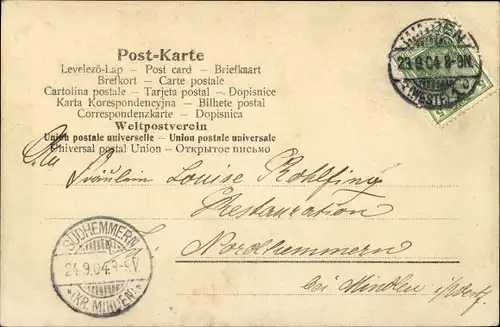 Post-Karte
Levelező-Lap — Post card — Briefkaart
Brefkort — Carte postale
Cartolina postale — Tarjeta postal — Dopisnice
Karta Korespondencyjna — Bilhete postal
Correspondenzkarte — Dopisnica
Weltpostverein
Union postale universelle — Union postale universale
Universal postal Union — Открытое письмо
MINDEN
23.9.04.8-9N.
(WESTF.)
5
An
Fräulein Louise Rohlfing
Restauration
Nordhemmern
bei Minden i/Westf.
SÜDHEMMERN
24.9.04.8-9V.
(KR. MINDEN)